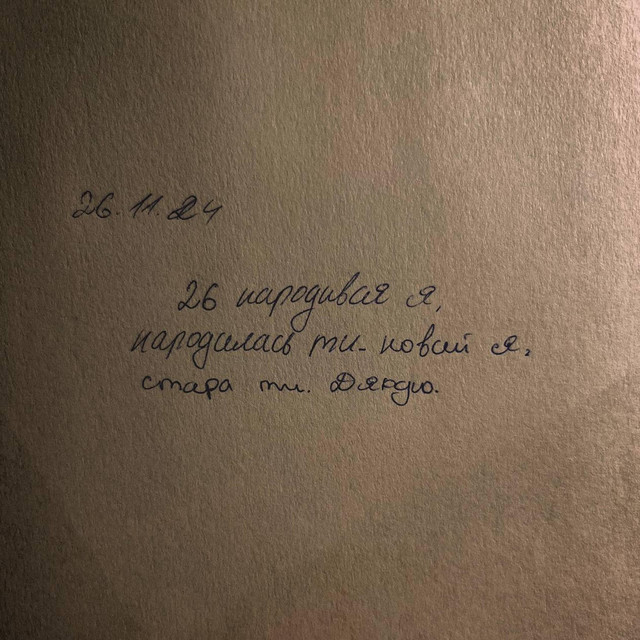 26.11.24
26 народивая я,
народилась ти - новий я,
стара ти. Дякую.